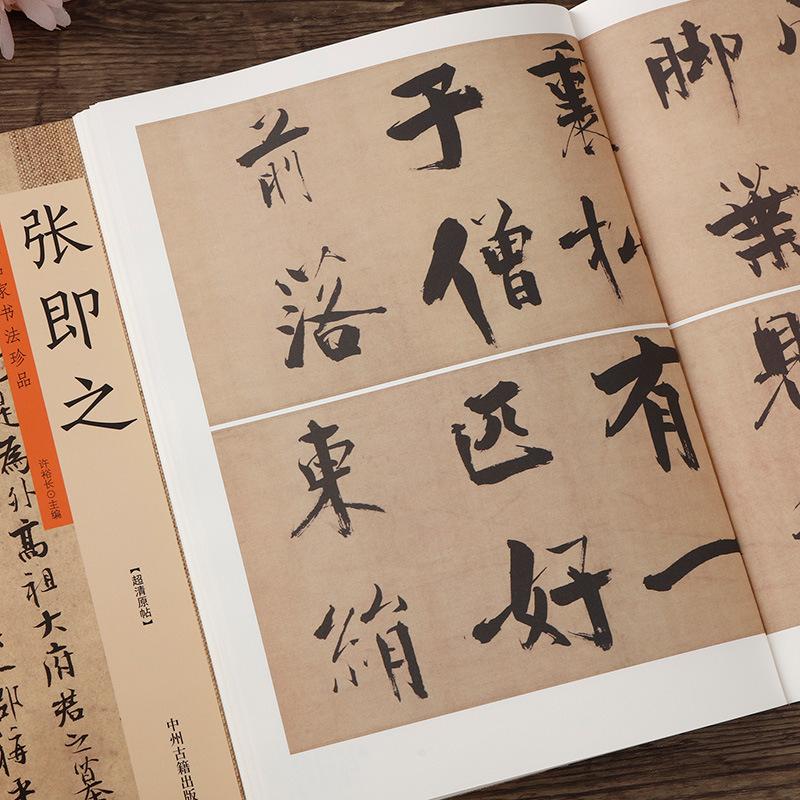 张即之
家书法珍品
许裕长⊙主编
【超清原帖】
中州古籍出版
為外高祖大府君之墓
脚葉
裏松
子僧
前落
見
有一
匹好
東絹